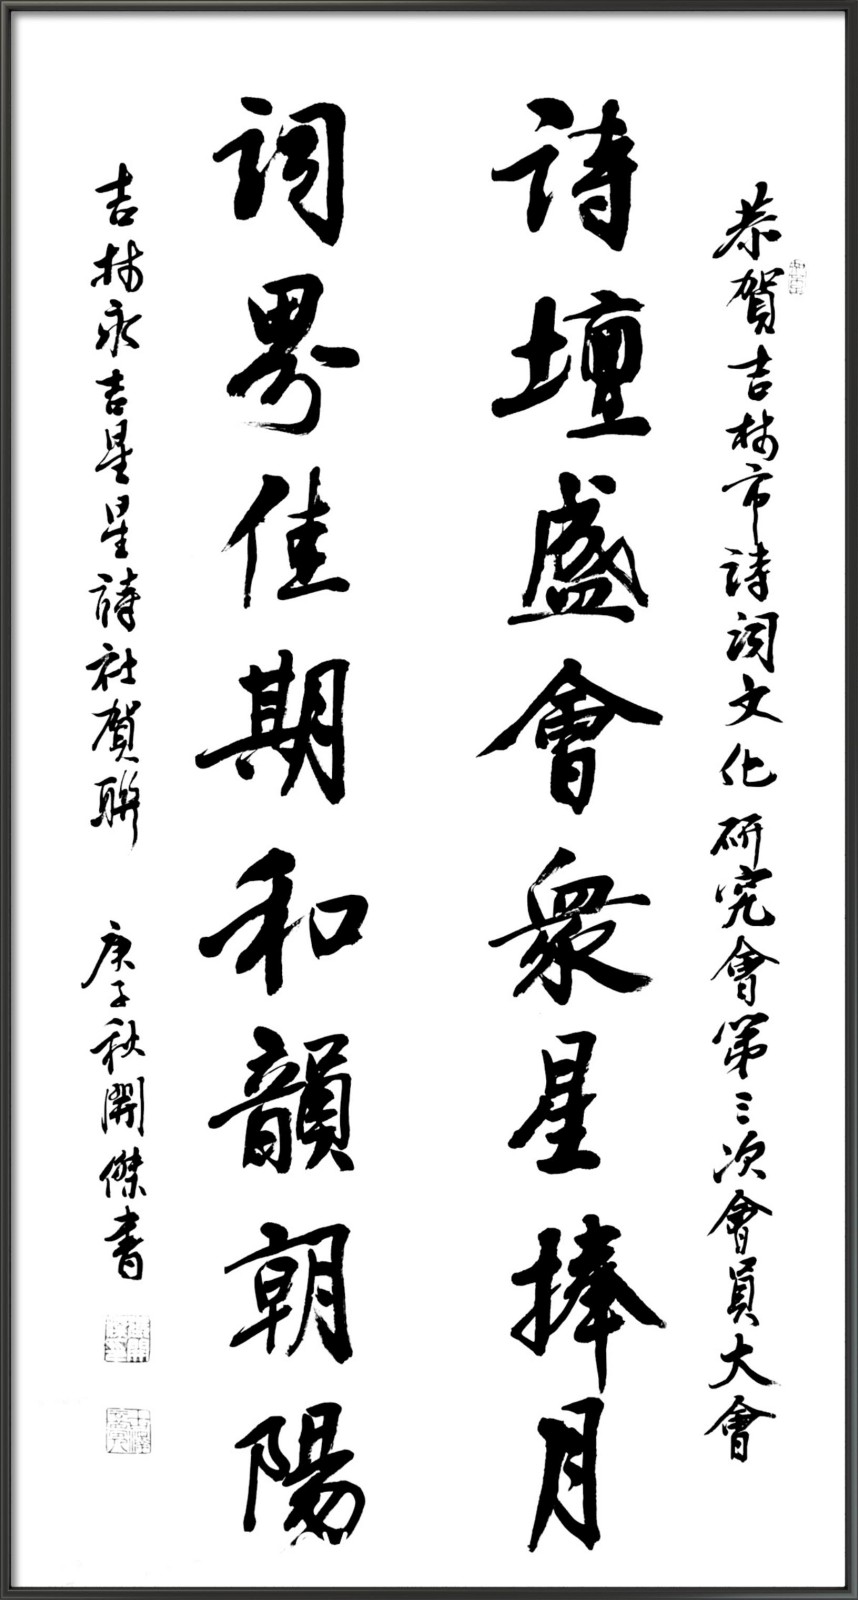 恭賀吉林市詩詞文化研究會第三次會員大會
詩壇盛會衆星捧月
詞界佳期和韻朝陽
吉林永吉星星詩社賀聯
庚子秋開傑書